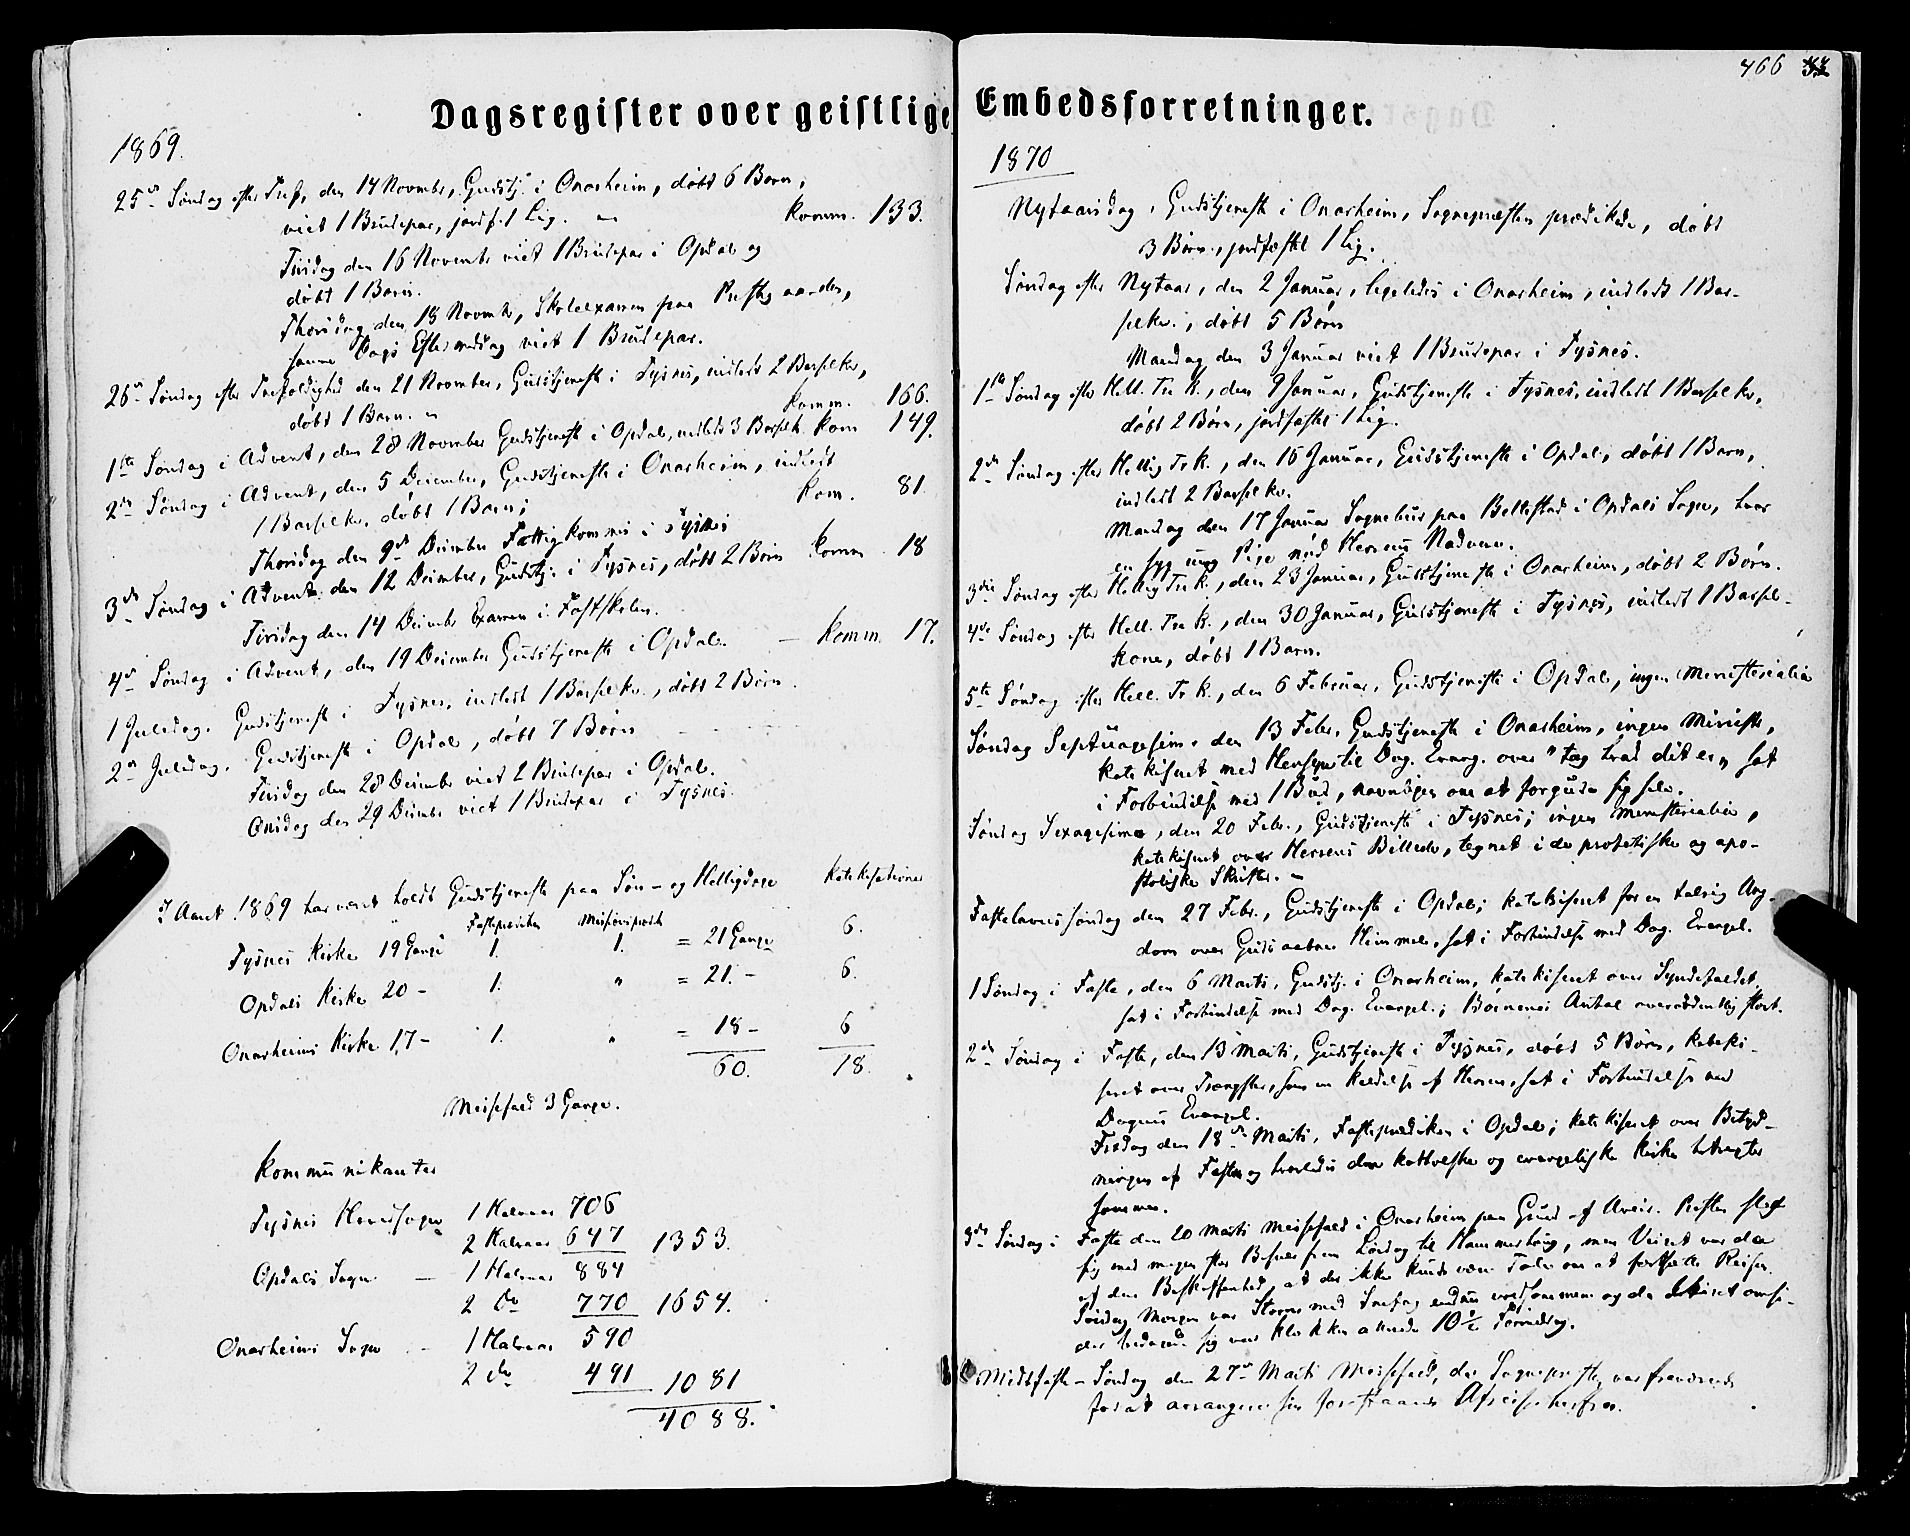 Dagsregister over geistlige Embedsforretninger.
466
1869.
25de Søndag efter Tref, den 14 Novmbr, Gudstj. i Onarheim, døbt 6 Børn,
viet 1 Brudepar, jordf. 1 Lig. Komm. 133.
Tirsdag den 16 Novembr viet 1 Brudepar i Opdal og
døbt 1 Barn.
Thorsdag den 18 Novmbr, Skoleexamen paa
samme Dags Eftermiddag viet 1 Brudepar.
26de Søndag efter Trefoldighed den 21 November, Gudstjeneste i Tysnes, indledt 2 Barselkv,
døbt 1 Barn. Komm. 166.
1ste Søndag i Advent, den 28 November Gudstjeneste i Opdal, indledt 3 Barselk. Kom 149.
2den Søndag i Advent, den 5 December, Gudstjeneste i Onarheim, indledt
1 Barselkv. døbt 1 Barn; Kom. 81.
Thorsdag den 9de December Fattigkommis i Tysnes
3die Søndag i Advent den 12 December, Gudstj. i Tysnes, døbt 2 Børn Komm 18
Tirsdag den 14 December Examen i Fastskolen.
4de Søndag i Advent, den 19 December Gudstjeneste i Opdal. – Komm. 17.
1 Juledag. Gudstjeneste i Tysnes, indledt 1 Barselkv., døbt 2 Børn.
2den Juledag. Gudstjeneste i Opdal, døbt 7 Børn
Tirsdag den 28 December viet 2 Brudepar i Opdal.
Onsdag den 29 December viet 1 Brudepar i Tysnes.
I Aaret 1869 har været holdt Gudstjeneste paa Søn- og Helligdage Katekisationer
Fasteprædiken
Tysnes Kirke 19 Gange 1. 1. = 21 Gange 6.
Opdals Kirke 20 – 1. " = 21. – 6.
Onarheims Kirke 17 – 1. " = 18 – 6
60. 18.
Messefald 3 Gange.
Kommunikanter
Tysnes Hovedsogn 1 Halvaar 706
2 Halvaar 647 1353.
Opdals Sogn – 1 Halvaar 884
2 do 770 1654.
Onarheims Sogn – 1 Halvaar 590
2 do 491 1081
4088.
1870
Nytaarsdag, Gudstjeneste i Onarheim, Sognepræsten prædikede, døbt
3 Børn, jordfæstet 1 Lig.
Søndag efter Nytaar, den 2 Januar, ligeledes i Onarheim, indledt 1 Bar-
selkv., døbt 5 Børn
Mandag den 3 Januar viet 1 Brudepar i Tysnes.
1ste Søndag efter Hell. Tr. K., den 9 Januar, Gudstjeneste i Tysnes, indledt 1 Barselkv,
døbt 2 Børn, jordfæstet 1 Lig.
2den Søndag efter Hellig Tr. K., den 16 Januar, Gudstjeneste i Opdal, døbt 1 Barn,
indledt 2 Barselkv.
Mandag den 17 Januar Sognebud paa Bellestad i Opdals Sogn, hvor
en syg ung Pige nød Herrens Nadvere.
3die Søndag efter Hellig Tr. K., den 23 Januar, Gudstjeneste i Onarheim, døbt 2 Børn.
4de Søndag efter Hell. Tr. K., den 30 Januar, Gudstjeneste i Tysnes, indledt 1 Barsel-
kone, døbt 1 Barn.
5te Søndag efter Hell. Tr. K., den 6 Februar, Gudstjeneste i Opdal, ingen Ministerialia
Søndag Septuagesima den 13 Febr. Gudstjeneste i Onarheim, ingen Ministr,
katekiseret med Hensyn til Dag. Evang. over "tag hvad dit er", sat
i Forbindelse med 1 Bud, navnligen om at forgude sig selv.
Søndag Sexagesima, den 20 Febr., Gudstjeneste i Tysnes; ingen Ministerialia,
katekiseret over Herrens Billede, tegnet i de profetiske og apo-
stoliske Skrifter. –
Fastelavnssøndag den 27 Febr., Gudstjeneste i Opdal; katekiseret for en talrig Ung-
dom over Guds aabne Himmel, sat i Forbindelse med Dag. Evangel.
1 Søndag i Faste, den 6 Marts, Gudstj. i Onarheim, katekiseret over Syndefaldet,
sat i Forbindelse med Dag. Evangel.; Børnenes Antal overordentlig stort.
2den Søndag i Faste, den 13 Marts, Gudstjeneste i Tysnes, døbt 5 Børn, kateki-
seret over Trængsler, som en Kaldelse af Herren, sat i Forbindelse med
Dagens Evangel.
Fredag den 18de Marts, Fasteprædiken i Opdal; katekiseret over Betyd-
ningen af Fasten og hvorledes den katholske og evangeliske Kirke betragter
samme.
3die Søndag i Faste den 20 Marts Messefald i Onarheim paa Grund af Uveir. Præsten
sig med megen stor Besvær frem Lørdag til Hammerhaug, men Veiret var da
af den Beskaffenhed, at der ikke kunde være Tale om at fortsætte Reisen.
Søndag Morgen var Storm med Snefog endnu voldsommere og da Veiret omsi-
der bedagede sig var Klokken allerede 10½ Formiddag.
Midtfaste-Søndag den 27de Marts Messefald, da Sognepræsten var fraværende
for at arrangere sin forestaaende Afreise herfra.